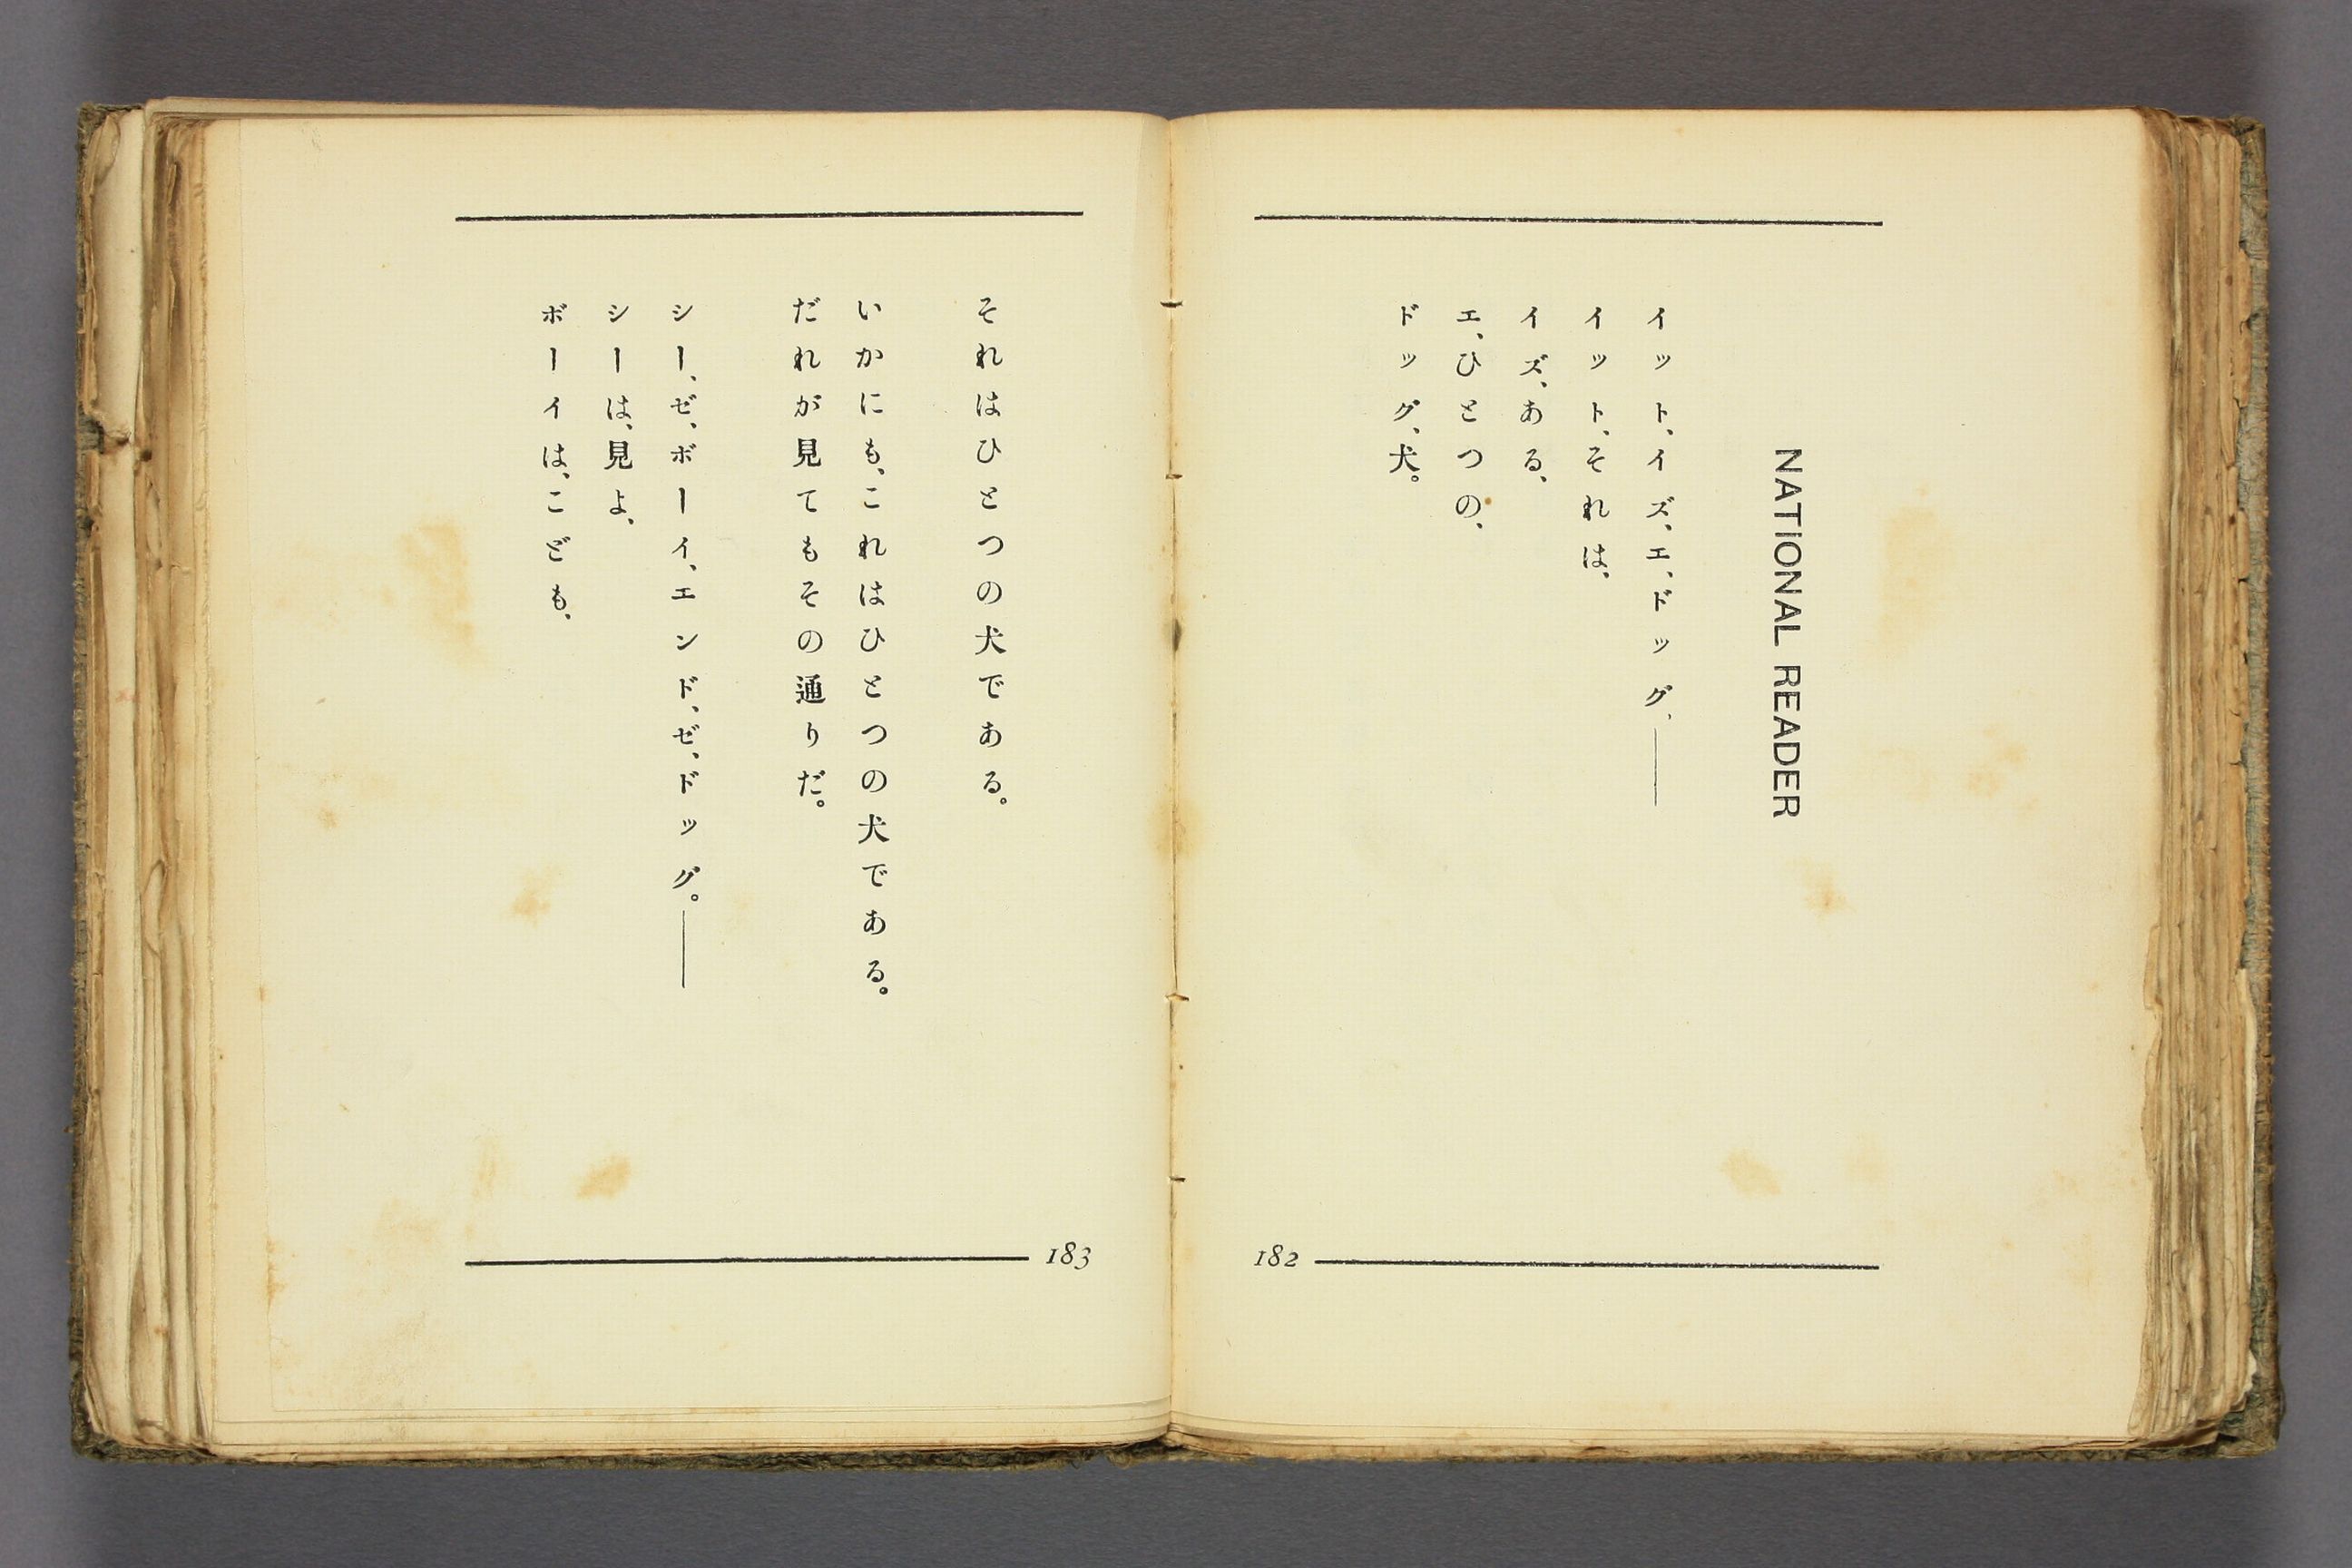 NATIONAL READER
イット、イズ、エ、ドッグ、――
イット、それは、
イズ、ある、
エ、ひとつの、
ドッグ、犬。
182
それはひとつの犬である。
いかにも、これはひとつの犬である。
だれが見てもその通りだ。
シー、ゼ、ボーイ、エンド、ゼ、ドッグ。――
シーは、見よ、
ボーイは、こども、
183